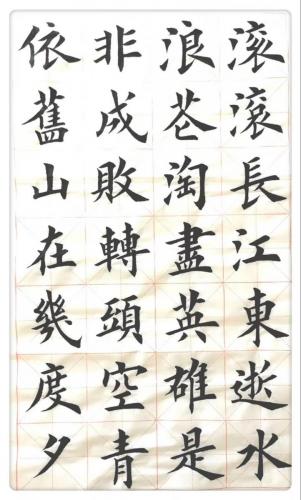 滚滚長江東逝水
浪花淘盡英雄是
非成敗轉頭空青
山依舊在幾度夕